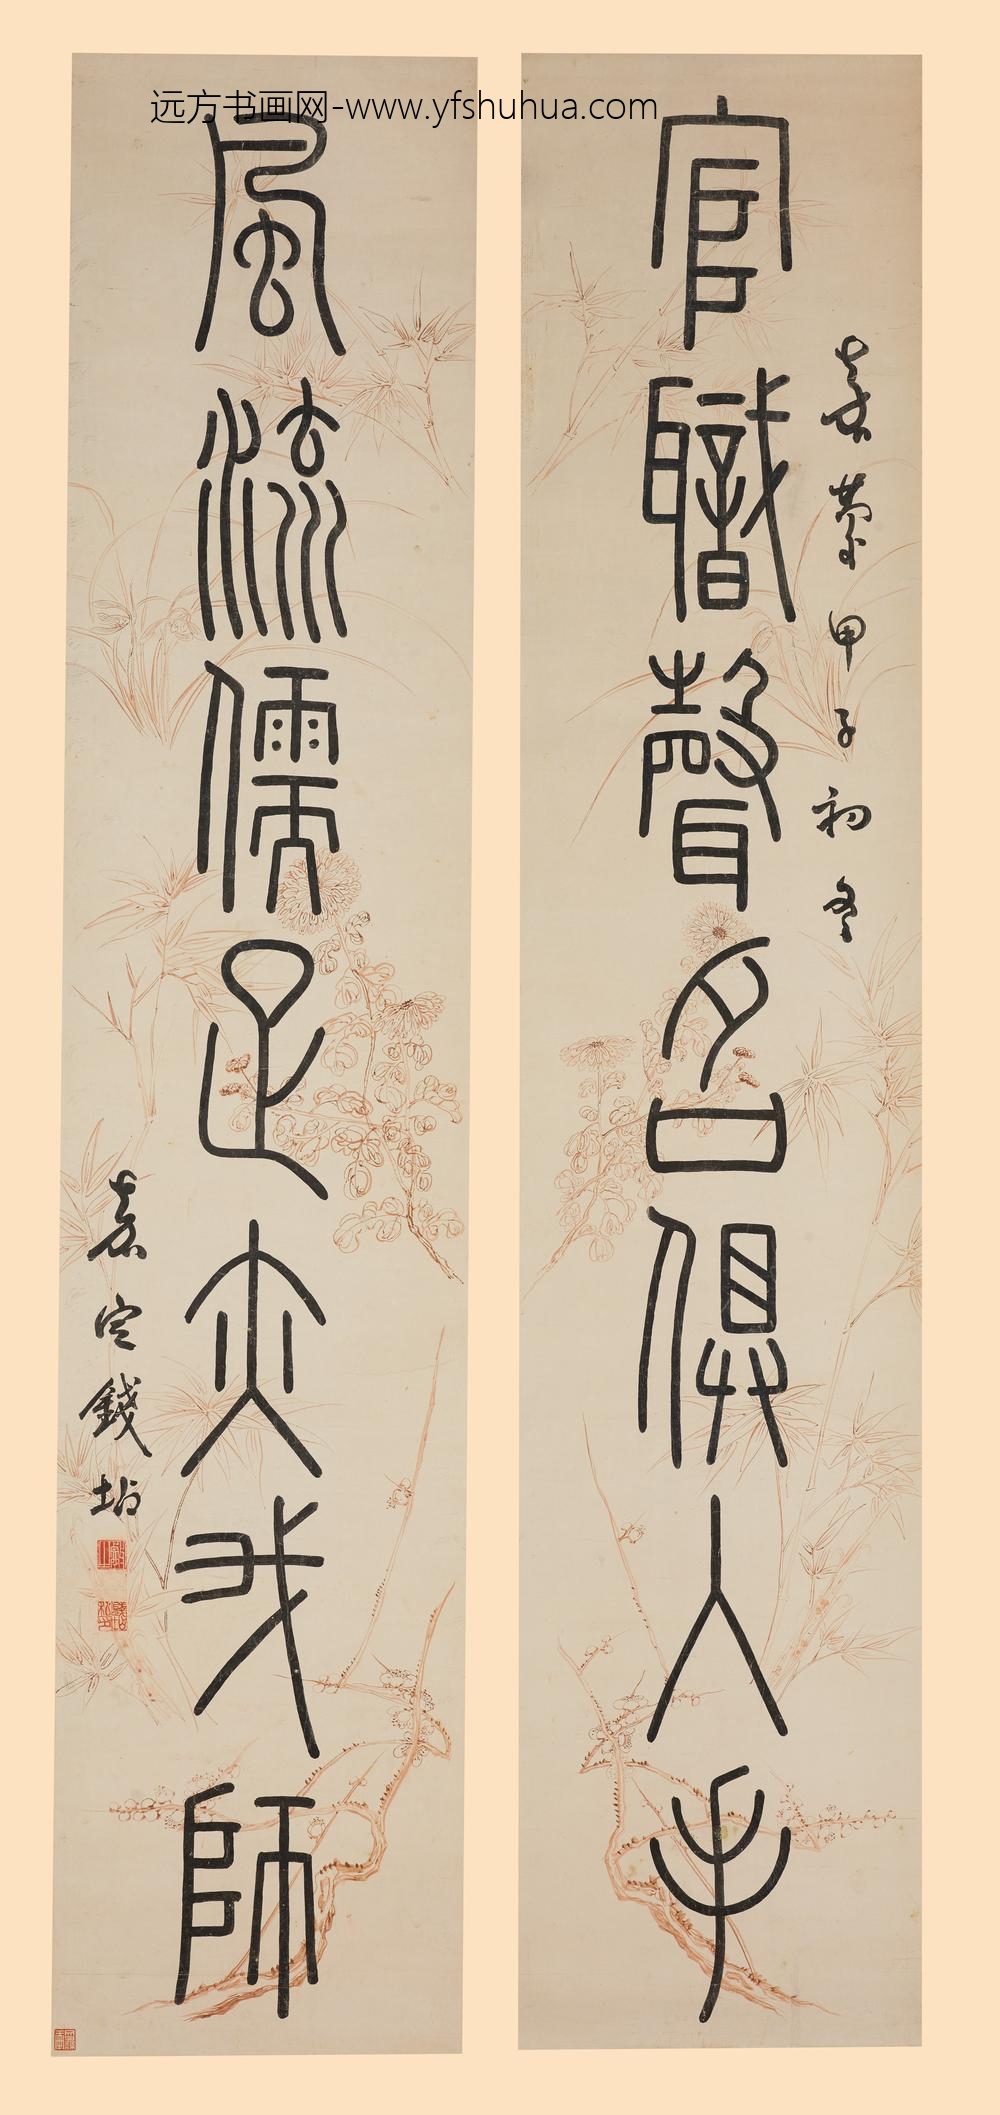 远方书画网-www.yfshuhua.com
官職聲名俱入手
嘉慶甲子初冬
風流儒疋亦我師
嘉定錢坫